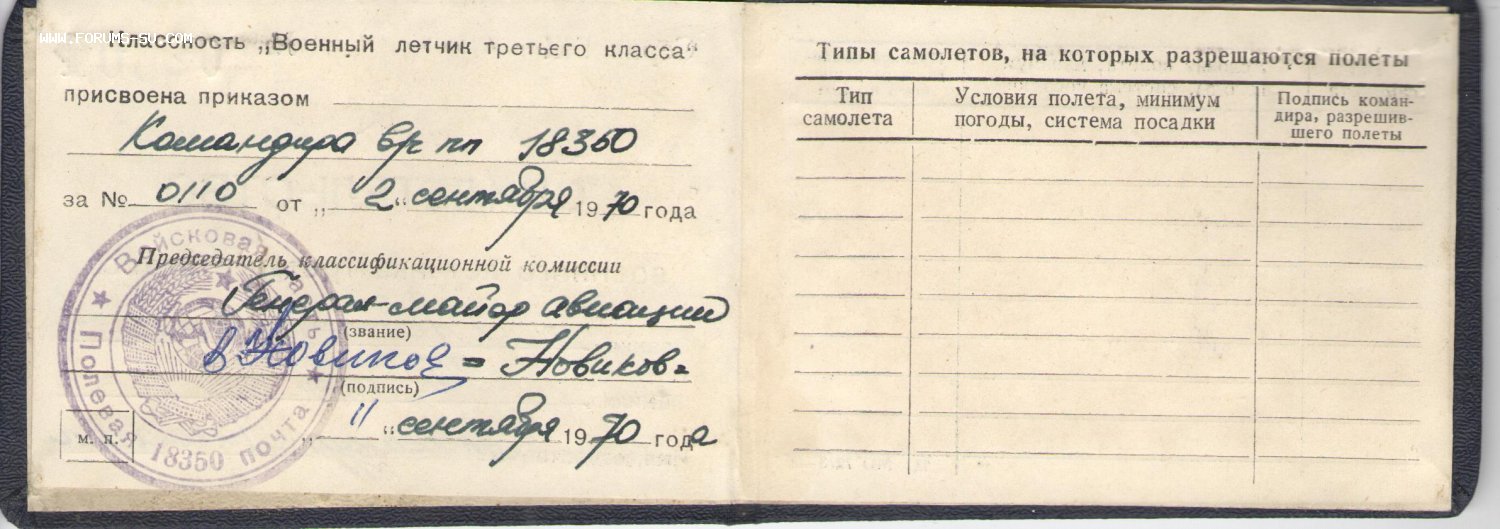 WWW.FORUMS-SU.COM
Классность „Военный летчик третьего класса“
присвоена приказом
Командира вч пп 18350
за № 0110 от „ 2 “ сентября 1970 года
Председатель классификационной комиссии
Генерал-майор авиации
(звание)
В Новиков = Новиков =
(подпись)
„ 11 “ сентября 1970 года
м. п.
Войсковая часть
Полевая почта
18350
Типы самолетов, на которых разрешаются полеты
Тип самолета
Условия полета, минимум погоды, система посадки
Подпись коман-
дира, разрешив-
шего полеты